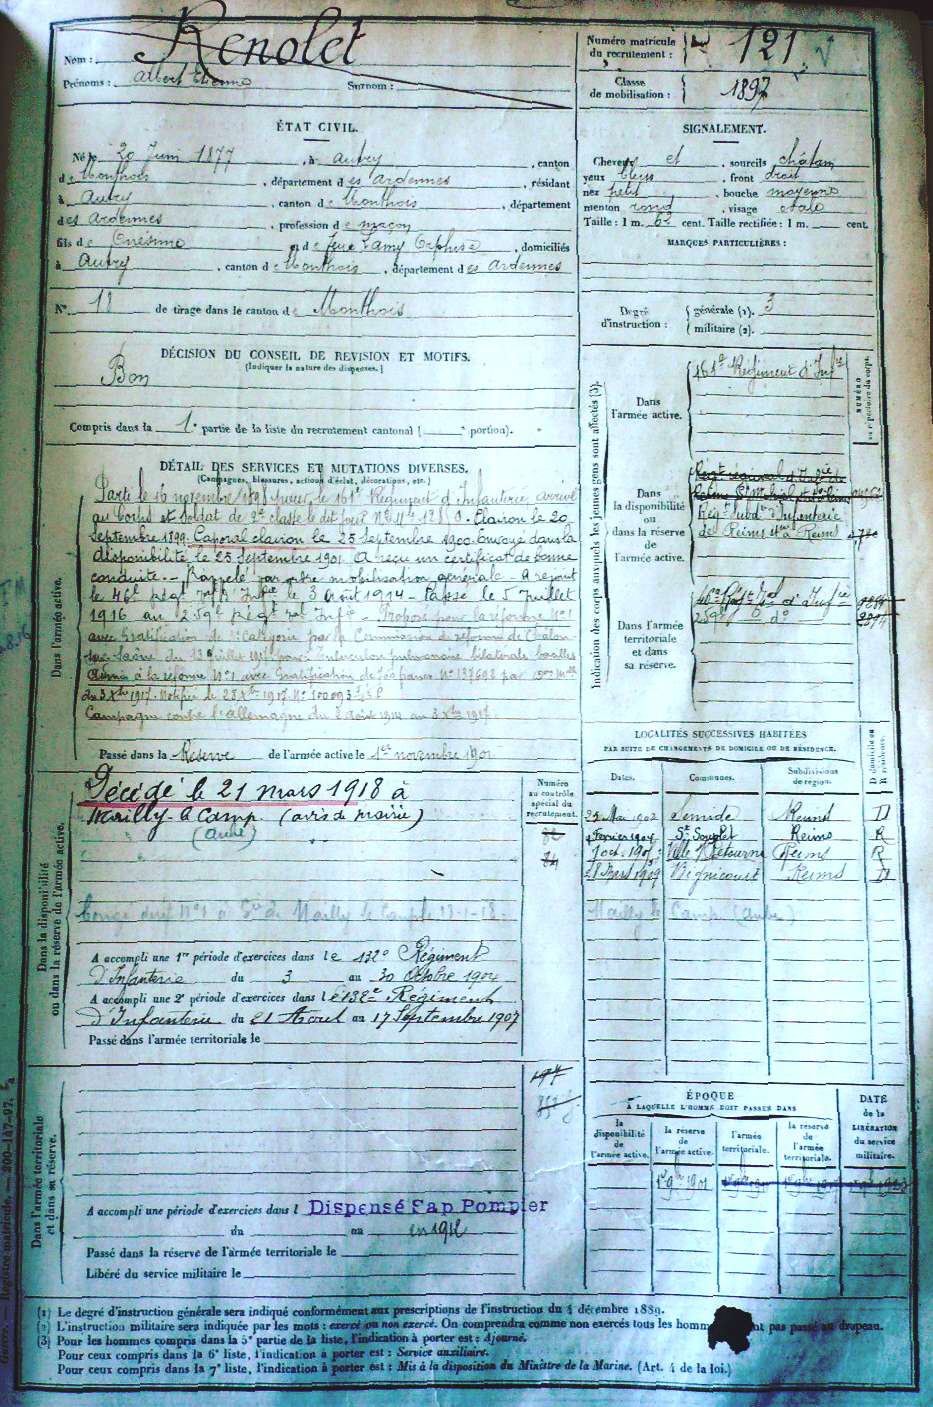 Nom : Renolet
Prénoms : Albert Etienne Surnom :
Numéro matricule
du recrutement : 121
Classe
de mobilisation : 1897
ÉTAT CIVIL.
Né le 20 Juin 1877, à Autry, canton
de Monthois, département des Ardennes, résidant
à Autry, canton de Monthois, département
des Ardennes, profession de maçon
fils d' Onésime et de feue Lamy Orphise, domiciliés
à Autry, canton de Monthois, département des Ardennes
N° 18 de tirage dans le canton de Monthois
SIGNALEMENT.
Cheveux et sourcils châtain
yeux bleus, front droit
nez petit, bouche moyenne
menton rond, visage ovale
Taille : 1 m. 62 cent. Taille rectifiée : 1 m. cent.
MARQUES PARTICULIÈRES :
Degré
d'instruction :
générale (1). 3
militaire (2).
DÉCISION DU CONSEIL DE REVISION ET MOTIFS.
(Indiquer la nature des dispenses.)
Bon
Compris dans la 1e partie de la liste du recrutement cantonal ( portion).
DÉTAIL DES SERVICES ET MUTATIONS DIVERSES.
(Campagnes, blessures, actions d'éclat, décorations, etc.)
Dans l'armée active.
Parti le 16 novembre 1898 pour le 161e Régiment d'Infanterie, arrivé
au Corps et soldat de 2e classe le dit jour. Clairon le 20
Septembre 1899. Caporal clairon le 25 Septembre 1900. Envoyé dans la
disponibilité le 25 Septembre 1901. A reçu un certificat de bonne
conduite. - Rappelé par ordre mobilisation générale - A rejoint
le 46e Régt d'Infie le 3 Août 1914 - Passé le 5 Juillet
1916 au 259e Régt d'Infie - Proposé pour la réforme N°1
avec Gratification de catégorie par la Commission de réforme de Châlon
sur Saône du 13 Juillet 1917 pour tuberculose pulmonaire bilatérale bacilles
à la réforme N°1 avec Gratification de francs N° 137698 par
du 3 Xbre 1917. Notifié le 28 Xbre 1917 N° 100093
Campagne contre l'Allemagne du 3 août 1914 au 3 Xbre 1917
Passé dans la Réserve de l'armée active le 1er novembre 1901
Indication des corps auxquels les jeunes gens sont affectés (3).
NUMÉRO
au répertoire du corps.
Dans
l'armée active.
161e Régiment d'Infie
Dans
la disponibilité
ou
dans la réserve
de
l'armée active.
Régt Subdre d'Infanterie
de Reims à Reims
Dans l'armée
territoriale
et dans
sa réserve.
46e Régt d'Infie
259e do
LOCALITÉS SUCCESSIVES HABITÉES
PAR SUITE DE CHANGEMENTS DE DOMICILE OU DE RÉSIDENCE.
Dates. Communes. Subdivisions
de région. D domicile ou
R résidence.
25 Mai 1902 Semide Reims D
Février 1904 St Souplet Reims R
7 oct. 1905 Ville s/Retourne Reims R
28 Mars 1909 Bignicourt Reims D
Mailly le Camp (Aube)
Dans la disponibilité
ou dans la réserve de l'armée active.
Numéro
au contrôle
spécial du
recrutement.
Décédé le 21 mars 1918 à
Mailly-le Camp (avis de mairie)
(Aube)
Congé déf N°1 à Mailly le Camp le 11-1-18
A accompli une 1re période d'exercices dans le 132e Régiment
d'Infanterie du 3 au 30 Octobre 1904
A accompli une 2e période d'exercices dans le 132e Régiment
d'Infanterie du 21 Août au 17 Septembre 1907
Passé dans l'armée territoriale le
Dans l'armée territoriale
et dans sa réserve.
A accompli une période d'exercices dans l Dispensé Sap Pompier
du au en 1912
Passé dans la réserve de l'armée territoriale le
Libéré du service militaire le
ÉPOQUE
À LAQUELLE L'HOMME DOIT PASSER DANS
DATE
de la
LIBÉRATION
du service
militaire.
la
disponibilité
de
l'armée active.
la réserve
de
l'armée active.
l'armée
territoriale.
la réserve
de
l'armée
territoriale.
1er 9bre 1901
Registre matricule. — 200-147-97.
(1) Le degré d'instruction générale sera indiqué conformément aux prescriptions de l'instruction du 4 décembre 1889.
(2) L'instruction militaire sera indiquée par les mots : exercé ou non exercé. On comprendra comme non exercés tous les homm nt pas passé au drapeau.
(3) Pour les hommes compris dans la 5e partie de la liste, l'indication à porter est : Ajourné.
Pour ceux compris dans la 6e liste, l'indication à porter est : Service auxiliaire.
Pour ceux compris dans la 7e liste, l'indication à porter est : Mis à la disposition du Ministre de la Marine. (Art. 4 de la loi.)